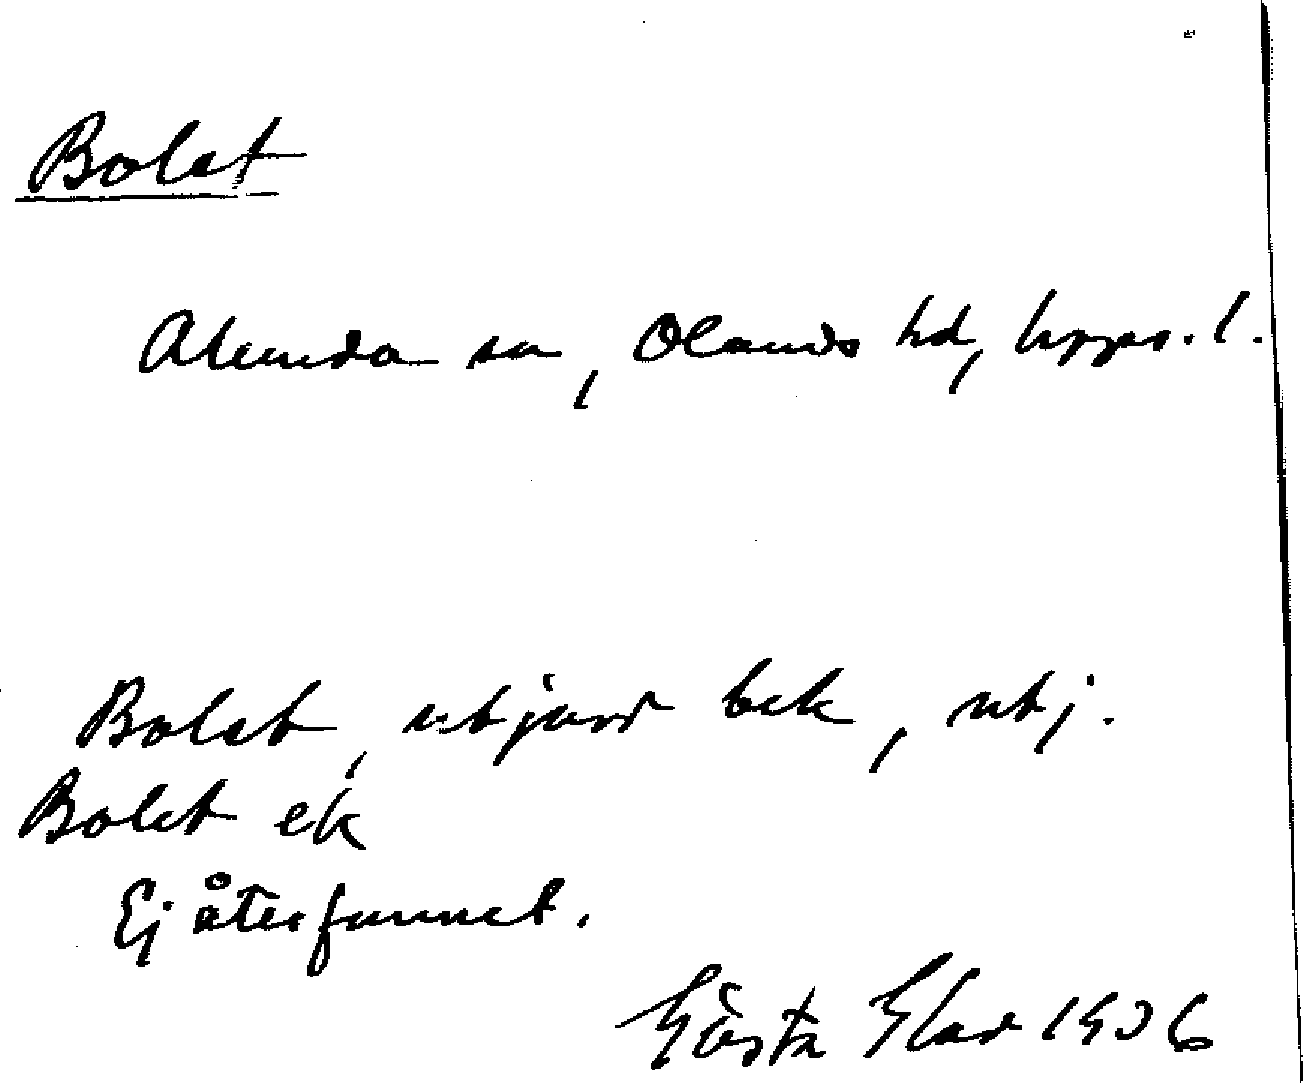 Bolet
Alunda sn, Olands hd, Upps. l.
Bolet, utjord bek, utj.
Bolet ek
Ej återfunnet.
Gösta 1936